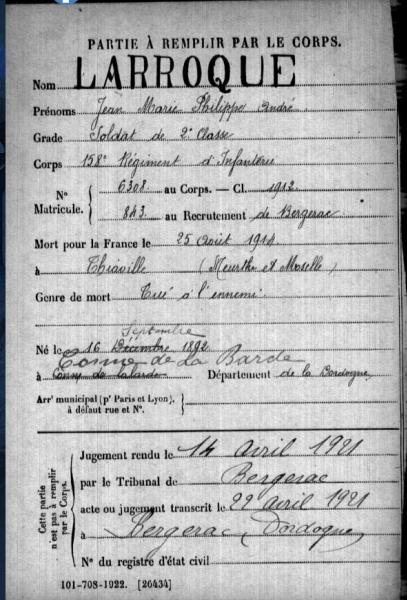 PARTIE À REMPLIR PAR LE CORPS.
Nom LARROQUE
Prénoms Jean Marie Philippe André
Grade Soldat de 2e Classe
Corps 158e Régiment d'Infanterie
N° Matricule. { 6308 au Corps. — Cl. 1912
843 au Recrutement de Bergerac
Mort pour la France le 25 Août 1914
à Thiaville (Meurthe et Moselle)
Genre de mort Tué à l'ennemi
Septembre
Né le 16 Décembre 1892
Conne de La Barde
à Conne de Labarde Département de la Dordogne
Arrt municipal (pr Paris et Lyon), à défaut rue et N°.
Cette partie n'est pas à remplir par le Corps.
Jugement rendu le 14 avril 1921
par le Tribunal de Bergerac
acte ou jugement transcrit le 22 avril 1921
à Bergerac, Dordogne
N° du registre d'état civil
101-708-1922. [26434]